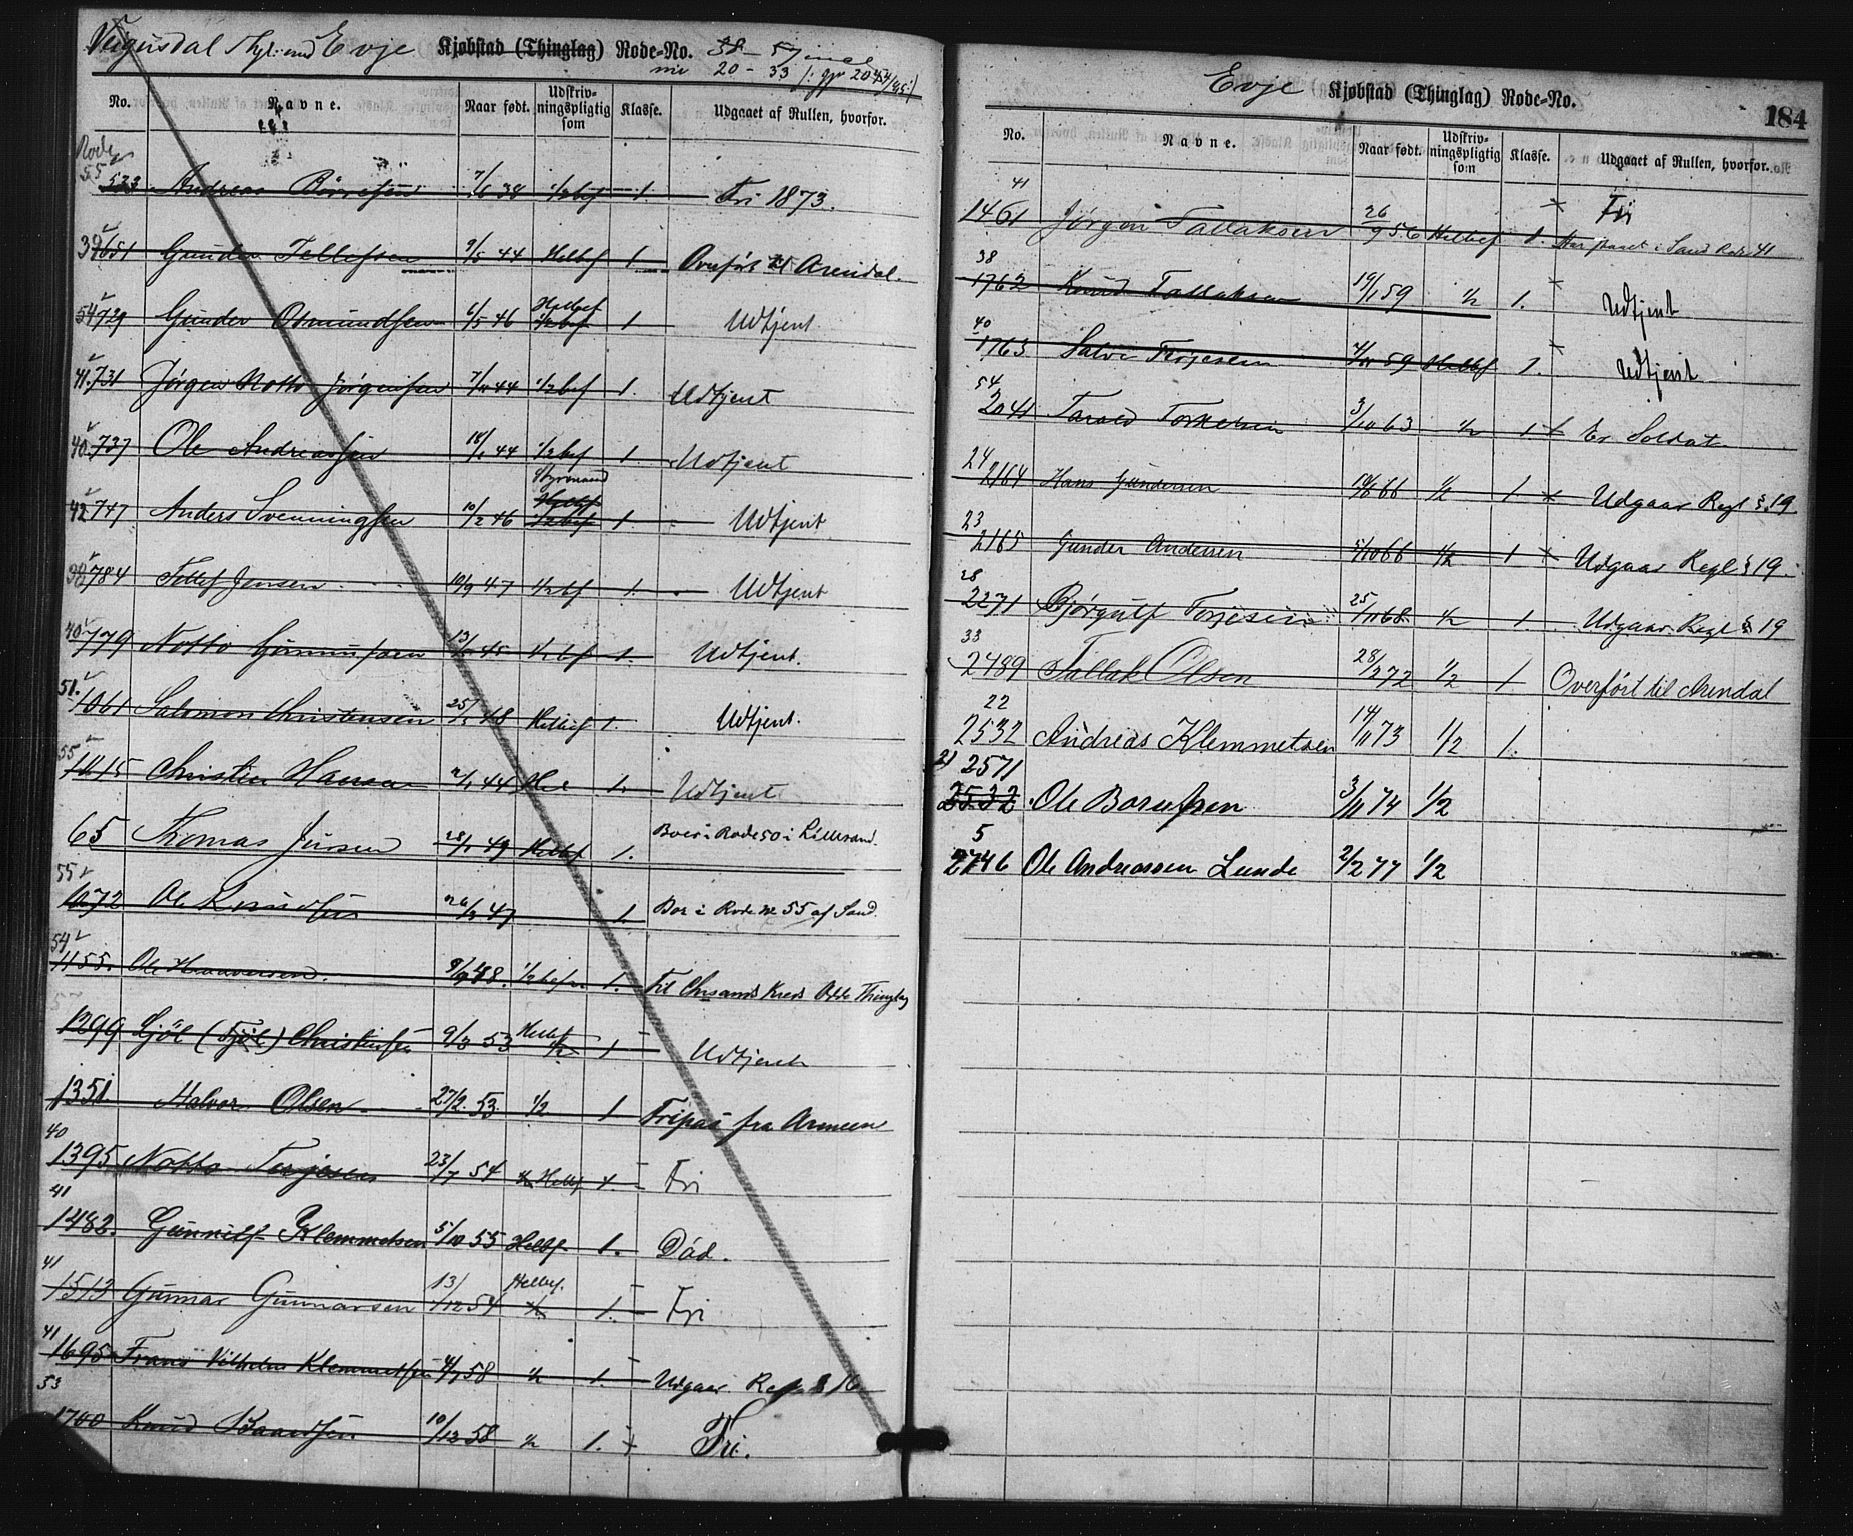 Evje Kjøbstad (Thinglag) Rode-No. 38 - 57
20 - 33
No. Navne. Naar født. Udskrivningspligtig som Klasse. Udgaaet af Rullen, hvorfor.
Rode
55
523 Andreas 38 ½bef 1. Fri 1873.
39 651 Gunder Tellefsen 9/5 44 Helbef 1. Overført til Arendal.
Helbef
54 729 Gunder Osmundsen 6/5 46 ½bef 1 Udtjent
41. 731 Jørgen Notto Jørgensen 44 ½bef 1. Udtjent
40. 737 Ole Andreassen 18/1 44 ½bef 1. Udtjent
Styrmand
Helbf
42 747 Anders Svenningsen 10/2 46 ½bef 1. Udtjent
38 784 Tellef Jensen 10/9 47 ½bf 1. Udtjent
40 779 Notto 45 ½bf 1. Udtjent.
51. 1061 Salomon Christensen 25/ 48 Helbef 1. Udtjent.
55 1015 Christen Hansen 44 Hel 1. Udtjent
65 Thomas Jensen 28/1 49 Helbef 1. Boer i Rode 50 i Lillesand.
55
1072 Ole Knudsen 26/ 47 1. Bor i Rode No 55 af Sand.
54
1155. Ole 9/9 48. ½bef 1. Til Chrsands Kreds Thinglag
Helbf
1299 (Tjøl) Christensen 9/3 53 ½ 1 Udtjent
1351 Halvor Olsen 27/2. 53 ½ 1 Fripas fra Armeen
40
1395 Notto Terjesen 23/7 54 Helbf 1. Fri
41
1482. Gunnulf Klemmetsen 5/10 55 Helbf 1. Död.
41
Helbef.
1513 Gunnar Gunnarsen 13/12 54 ½ 1. Fri
41
1695 Frans Vilhelm Klemmetsen 4/7 58 ½ 1. Udgaar Regl § 16
53
1700 Knud Baardsen 10/12 58 ½ 1. Fri.
184
Evje Kjøbstad (Thinglag) Rode-No.
No. Navne. Naar født. Udskrivningspligtig som Klasse. Udgaaet af Rullen, hvorfor.
41
1461 Jørgen Tallaksen 26/9 56 Helbef 1. Fri
i Sand Rode 41
38
1762 Knud Tallaksen 19/1 59 ½ 1. Udtjent
40
1763 Salve Terjesen 59 Helbf 1. Udtjent
54
2041 Tarald Torkelsen 3/10 63 ½ 1 Er Soldat
24
2164 Hans Gundersen 66 ½ 1 Udgaar Regl § 19.
23
2165 Gunder Andersen 5/10 66 ½ 1 Udgaar Regl § 19.
28
2271 Bjørgulf Torjesen 25/11 68 ½ 1. Udgaar Regl § 19
33
2489 Tallak Olsen 28/2 72 ½ 1 Overført til Arendal
22
2532 Andreas Klemmetsen 14/11 73 ½ 1.
21 2571
2532 Ole Borufsen 3/11 74 ½
5
2746 Ole Andreassen Lunde 2/2 77 ½